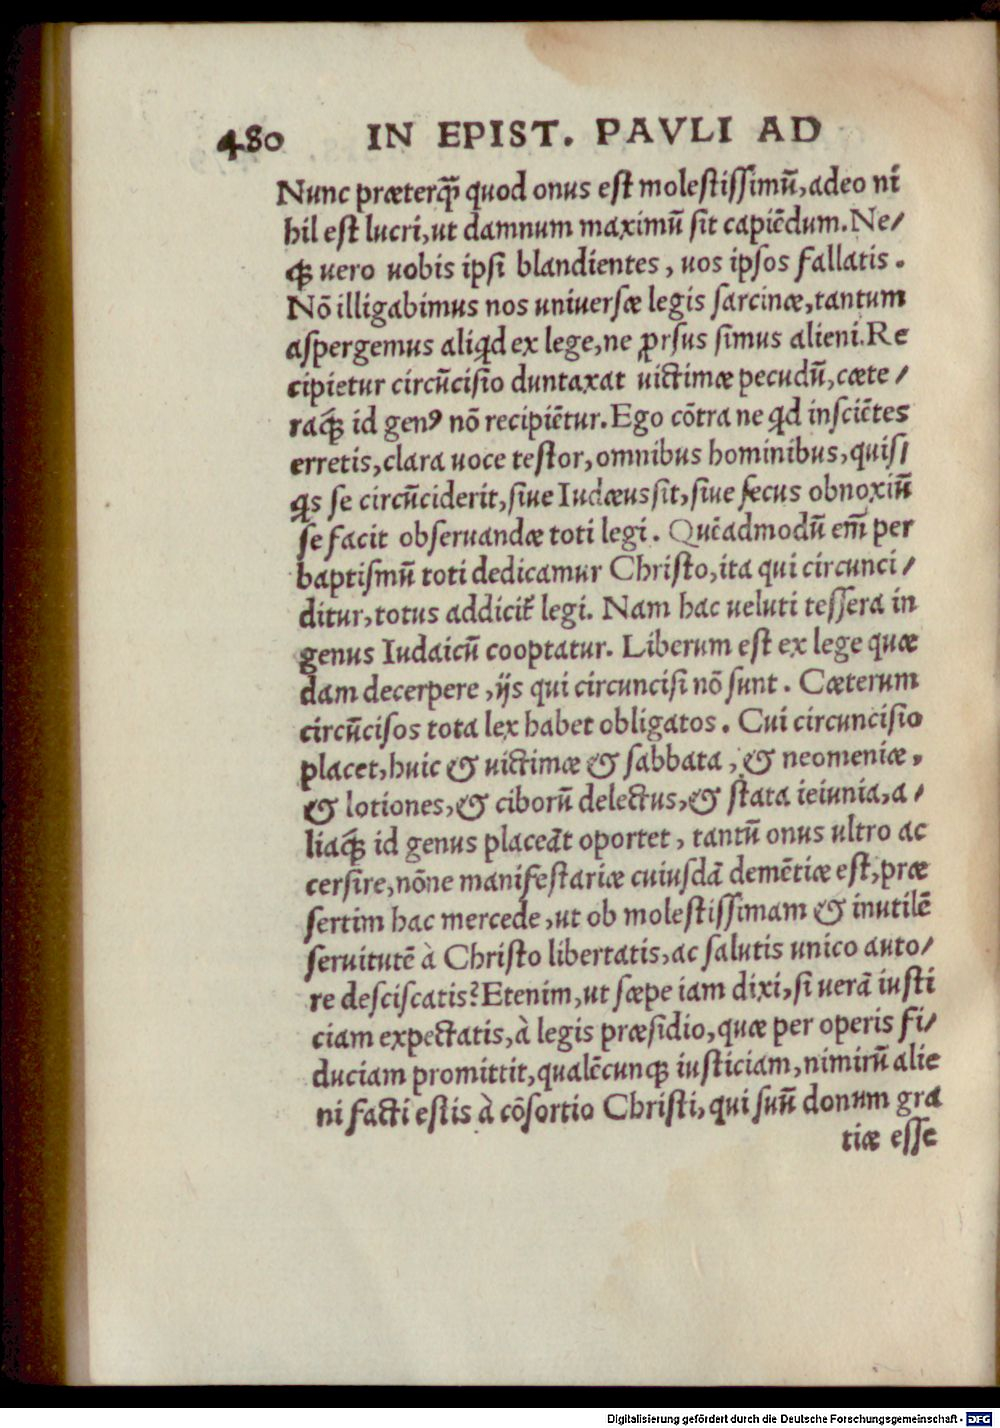 480 IN EPIST. PAVLI AD
Nunc præterq̃ quod onus est molestissimũ, adeo ni
hil est lucri, ut damnum maximũ sit capiẽdum. Ne/
qꝫ uero uobis ipsi blandientes, uos ipsos fallatis.
Nõ illigabimus nos universæ legis sarcinæ, tantum
aspergemus aliqd ex lege, ne ꝓrsus simus alieni. Re
cipietur circũcisio duntaxat uictimæ pecudũ, cæte/
raqꝫ id genꝰ nõ recipiẽtur. Ego cõtra ne qd insciẽtes
erretis, clara uoce testor, omnibus hominibus, quis/
qs se circũciderit, siue Iudæus sit, siue secus obnoxiũ
se facit obseruandæ toti legi. Quẽadmodũ em̃ per
baptismũ toti dedicamur Christo, ita qui circunci/
ditur, totus addicit̃ legi. Nam hac ueluti tessera in
genus Iudaicũ cooptatur. Liberum est ex lege quæ
dam decerpere, ijs qui circuncisi nõ sunt. Cæterum
circũcisos tota lex habet obligatos. Cui circuncisio
placet, huic & uictimæ & sabbata, & neomeniæ,
& lotiones, & ciborũ delectus, & stata ieiunia, a/
liaqꝫ id genus placeãt oportet, tantũ onus ultro ac
cersire, nõne manifestariæ cuiusdã demẽtiæ est, præ
sertim hac mercede, ut ob molestissimam & inutilẽ
seruitutẽ à Christo libertatis, ac salutis unico auto/
re desciscatis? Etenim, ut sæpe iam dixi, si uerã iusti
ciam expectatis, à legis præsidio, quæ per operis fi/
duciam promittit, qualẽcunqꝫ iusticiam, nimirũ alie
ni facti estis à cõsortio Christi, qui suũ donum gra
tiæ esse
Digitalisierung gefördert durch die Deutsche Forschungsgemeinschaft - DFG